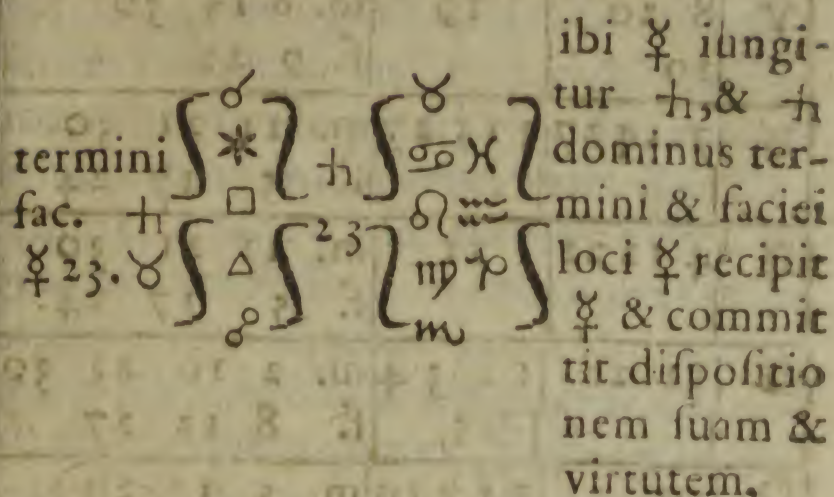 termini
fac. ♄
☿ 23. ♉
☌
⚹
□
△
☍
♄
23
♉
♋ ♓
♌ ♒
♍ ♑
♏
ibi ☿ iungi-
tur ♄, & ♄
dominus ter-
mini & faciei
loci ☿ recipit
☿ & commit
tit diſpoſitio
nem ſuam &
virtutem.